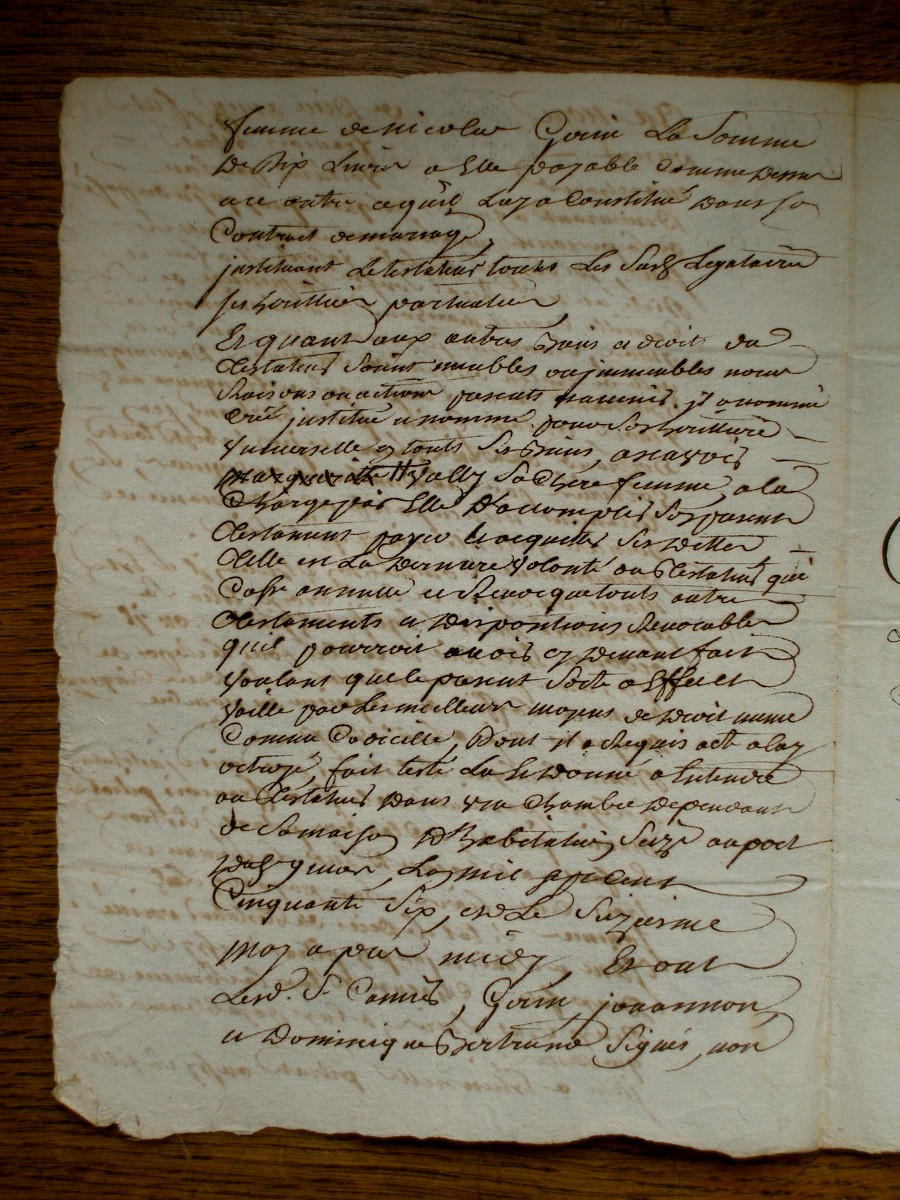 femme de nicolas Gorin La Somme
De Dix Livres a Elle payable Comme dessus
a ce outre ce qu'il Luy a Constitué Dans so
Contract de mariage,
justituant Le testateur touts Les Susd Legataires
ses herittiers particuliers
Et quant aux autres biens et droits du
testateur Soint meubles ou jmmeubles noms
Raisons ou actions presents et avenirs jl a nommé
Creé justitué et nommé pour Son herittiere
Vniverselle en touts Ses biens, a scavoir
Vally Sa Chere femme, a la
Charge par Elle D'accomplir Son present
testament payer et acquitter Ses dettes
telle est La Derniere Volonté du testateur qui
Casse annulle et Revocque touts autres
testaments et Dispositions Revocables
qu'il pourroit avoir cy devant fait
Voulant que le present Sorte a Effect et
Vaille par Les meilleurs moyens de Droit meme
Comme Codicille, Dont jl a Requis acte a luy
octroyé, fait leste Lu et Donné a Entendre
au testateur Dans vne Chambre dependant
de Sa maison D'habitation Size au port
Lan mil sept Cent
Cinquante Six, et Le Seizieme
May apres midy, Et ont
Lesd. Sr Camus, Gorin, jouannon,
et Dominique Bertrand Signés, non